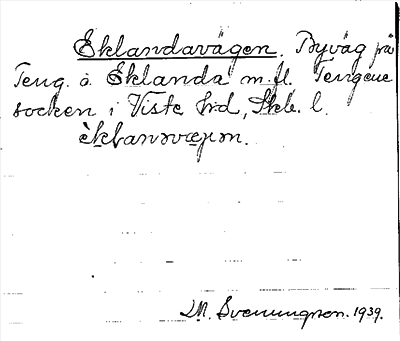 Eklandavägen. Byväg på
Teng. o. Eklanda m.fl. Tengene
socken i Viste hrd, Skb. l.
M. Svenungsson. 1939.